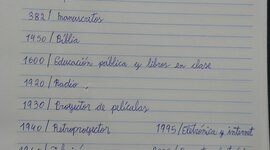 382/ Manuscritos
1450/ Biblia
1600/ Educación pública y libros en clase
1920/ Radio
1930/ Proyector de películas
1940/ Retroproyector 1995/ Eletrónica y internet